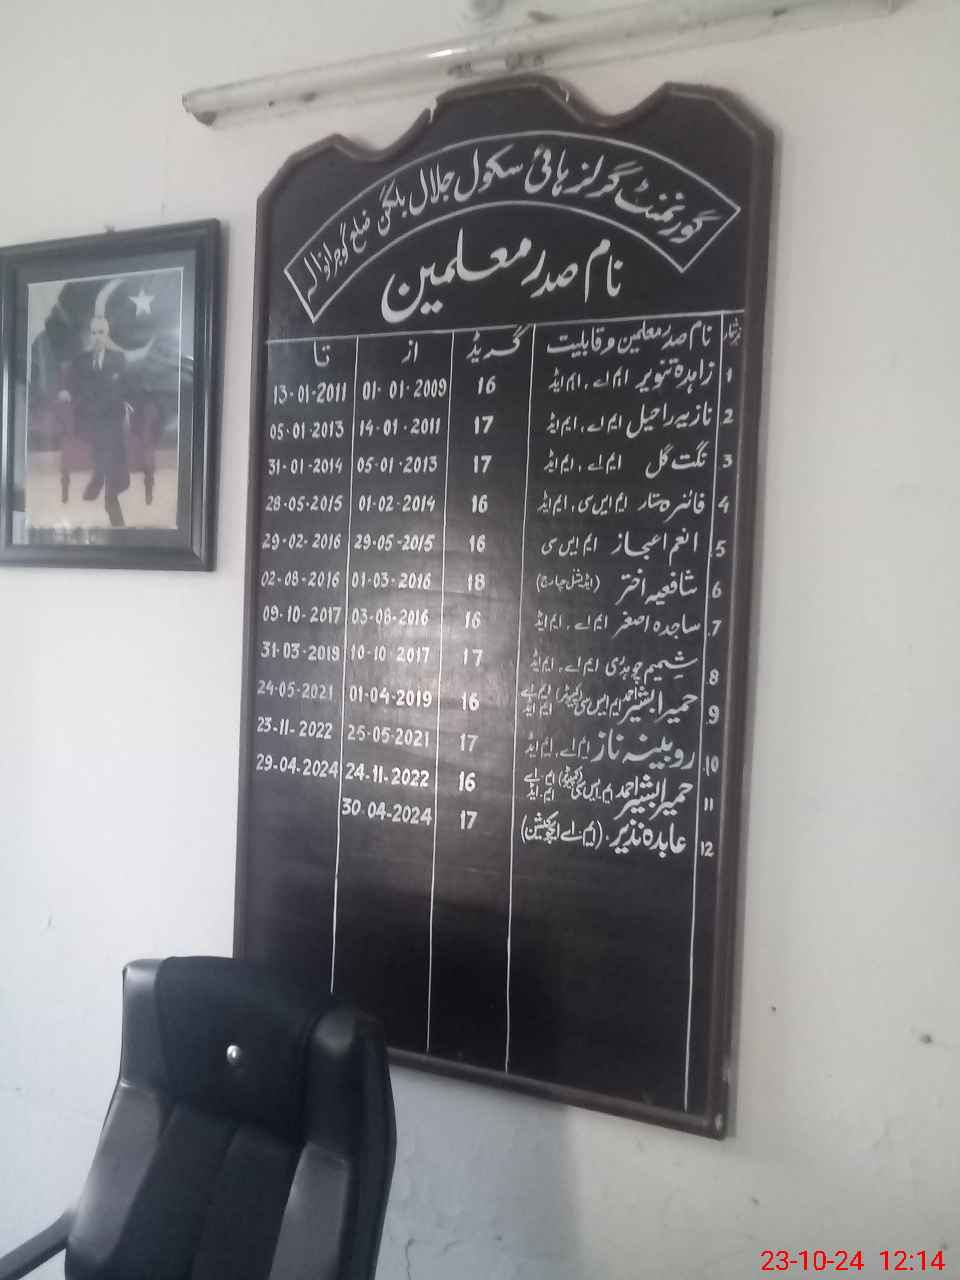 گورنمنٹ گرلز ہائی سکول جلال بلگن ضلع گوجرانوالہ
نام صدر معلمین
نمبر شمار نام صدر معلمین و قابلیت گریڈ از تا
1 زاہدہ تنویر ایم اے، ایم ایڈ 16 01-01-2009 13-01-2011
2 نازیہ راحیل ایم اے، ایم ایڈ 17 14-01-2011 05-01-2013
3 نگہت گل ایم اے، ایم ایڈ 17 05-01-2013 31-01-2014
4 فائزہ ستار ایم ایس سی، ایم ایڈ 16 01-02-2014 28-05-2015
5 انعم اعجاز ایم ایس سی 16 29-05-2015 29-02-2016
6 شافعیہ اختر (ایڈیشنل چارج) 18 01-03-2016 02-08-2016
7 ساجدہ اصغر ایم اے، ایم ایڈ 16 03-08-2016 09-10-2017
8 شمیم چوہدری ایم اے، ایم ایڈ 17 10-10-2017 31-03-2019
9 حمیرا بشیر احمد ایم ایس سی (کمپیوٹر) ایم اے ایم ایڈ 16 01-04-2019 24-05-2021
10 روبینہ ناز ایم اے، ایم ایڈ 17 25-05-2021 23-11-2022
11 حمیرا بشیر احمد ایم ایس سی (کمپیوٹر) ایم اے ایم ایڈ 16 24-11-2022 29-04-2024
12 عابدہ نذیر (ایم اے ایجوکیشن) 17 30-04-2024
23-10-24 12:14